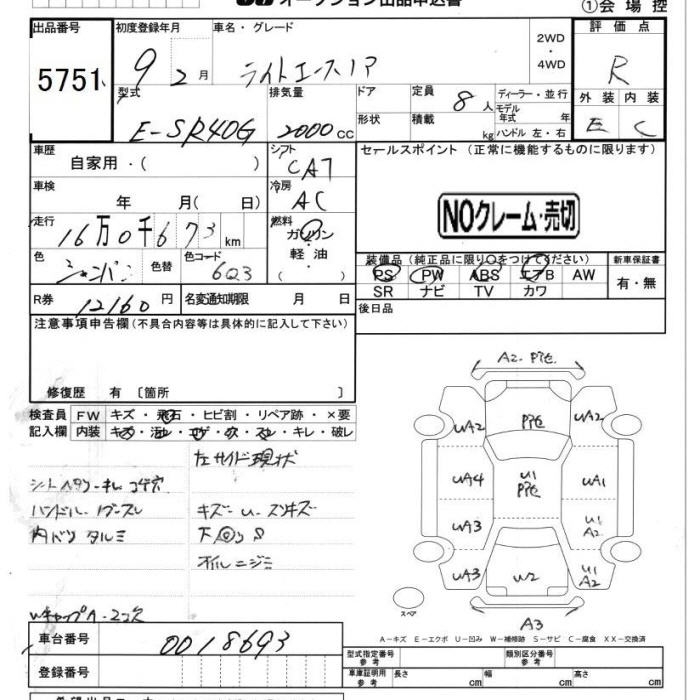 オークション出品申込書
①会場控
出品番号
5751
初度登録年月
9 2月
車名・グレード
ライトエースノア
2WD
・
4WD
評価点
R
型式
E-SR40G
排気量
2000cc
ドア
形状
定員
8人
積載
kg
ディーラー・並行
モデル年式 年
ハンドル 左・右
外装 内装
E C
車歴
自家用・( )
シフト
CAT
セールスポイント (正常に機能するものに限ります)
車検
年 月( 日)
冷房
AC
NOクレーム・売切
走行
16万0千673km
燃料
ガソリン
・
軽油
・
色
シャンパン
色替
色コード
6Q3
装備品 (純正品に限り○をつけてください)
新車保証書
PS PW ABS エアB AW
SR ナビ TV カワ
有・無
R券
12160円
名変通知期限 月 日
後日品
注意事項申告欄(不具合内容等は具体的に記入して下さい)
修復歴 有 〔箇所 〕
検査員
記入欄
FW キズ・飛石・ヒビ割・リペア跡・×要
内装 キズ・汚レ・コゲ・穴・スレ・キレ・破レ
左サイド現状
シートヘタリ・キレ コゲ穴
ハンドル・ノブ スレ
キズ・U・スリキズ
内バリ タルミ
下回りS
オイルニジミ
A2. P色.
UA2 P色 UA2
UA4 U1 P色 UA1
UA3 U1 A2
UA3 U2 U1 A2
A3
スペア
A-キズ E-エクボ U-凹み W-補修跡 S-サビ C-腐食 XX-交換済
車台番号
0018693
登録番号
型式指定番号
参考
類別区分番号
参考
車庫証明用
参考
長さ cm 幅 cm 高さ cm